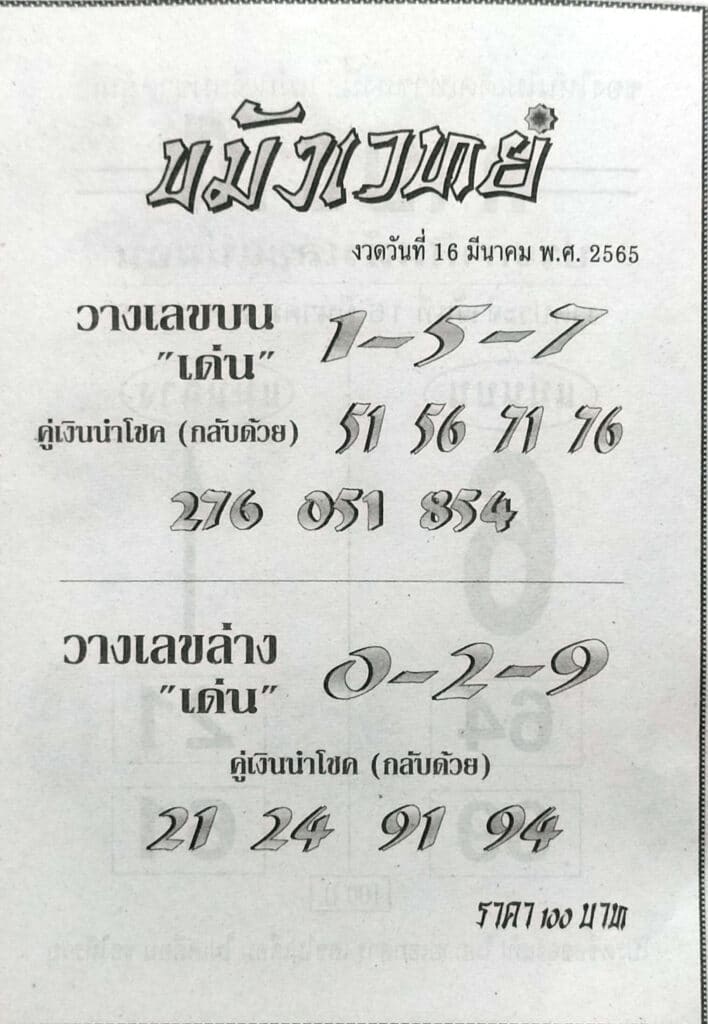 ขมังเวทย์
งวดวันที่ 16 มีนาคม พ.ศ. 2565
วางเลขบน 1-5-7
"เด่น"
คู่เงินนำโชค (กลับด้วย) 51 56 71 76
276 051 854
วางเลขล่าง 0-2-9
"เด่น"
คู่เงินนำโชค (กลับด้วย)
21 24 91 94
ราคา 100 บาท